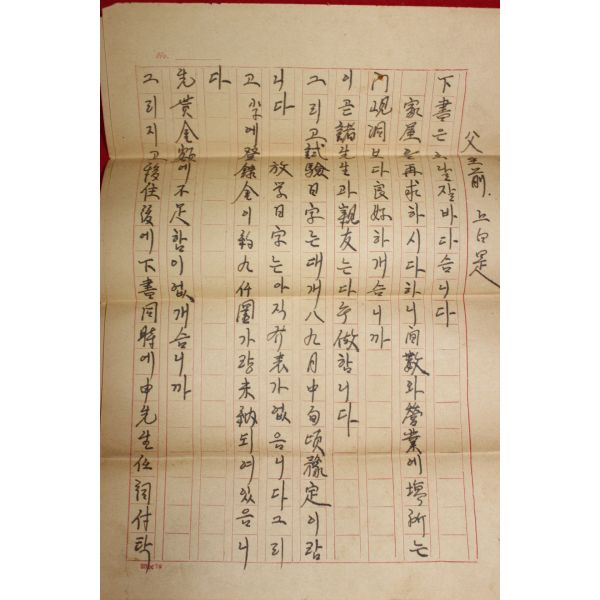 父主前 上白是
下書은 잘바다습니다
家屋을再求하시다하니間數와營業에場所는
門硯洞보다良好하개습니까
이곧諸先生과親友는다주做합니다
그리고試驗日字는대개八九月中旬頃豫定이람
니다 放学日字는아직發表가없음니다그리
고 学에登錄金이約九仟圜가량未納되여있음니
다
先貰金額에不足함이없개습니까
그리지고移住後에下書同時에申先生任 付탁
No.